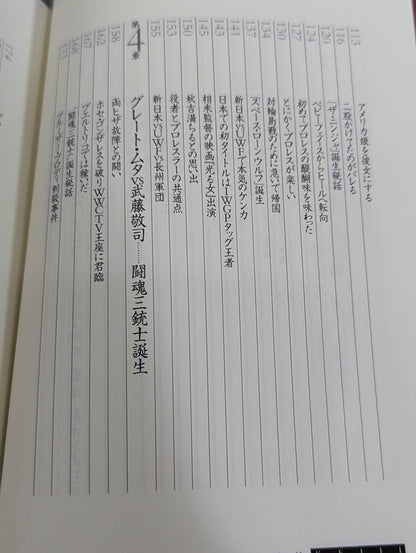 アメリカ娘を彼女にする 113
二股かけてたのがバレる 116
「ザ・ニンジャ」誕生秘話 120
ベビーフェイスからヒールへ転向 124
初めてプロレスの醍醐味を味わった 127
とにかくプロレスが楽しい 130
対輪島戦のために急いで帰国 134
「スペース・ローン・ウルフ」誕生 137
新日本vsUWFで本気のケンカ 141
日本での初タイトルはIWGPタッグ王者 143
相米監督の映画『光る女』出演 145
秋吉満ちるとの思い出 150
役者とプロレスラーの共通点 153
新日本vsUWFvs長州軍団 155
第4章 グレート・ムタvs武藤敬司……闘魂三銃士誕生
両ヒザ故障との闘い 158
ホセ・ゴンザレスを破りWWCTV王座に君臨 162
プエルトリコでは稼いだ 167
“闘魂三銃士”誕生秘話 168
ブルーザー・ブロディ刺殺事件 171
174